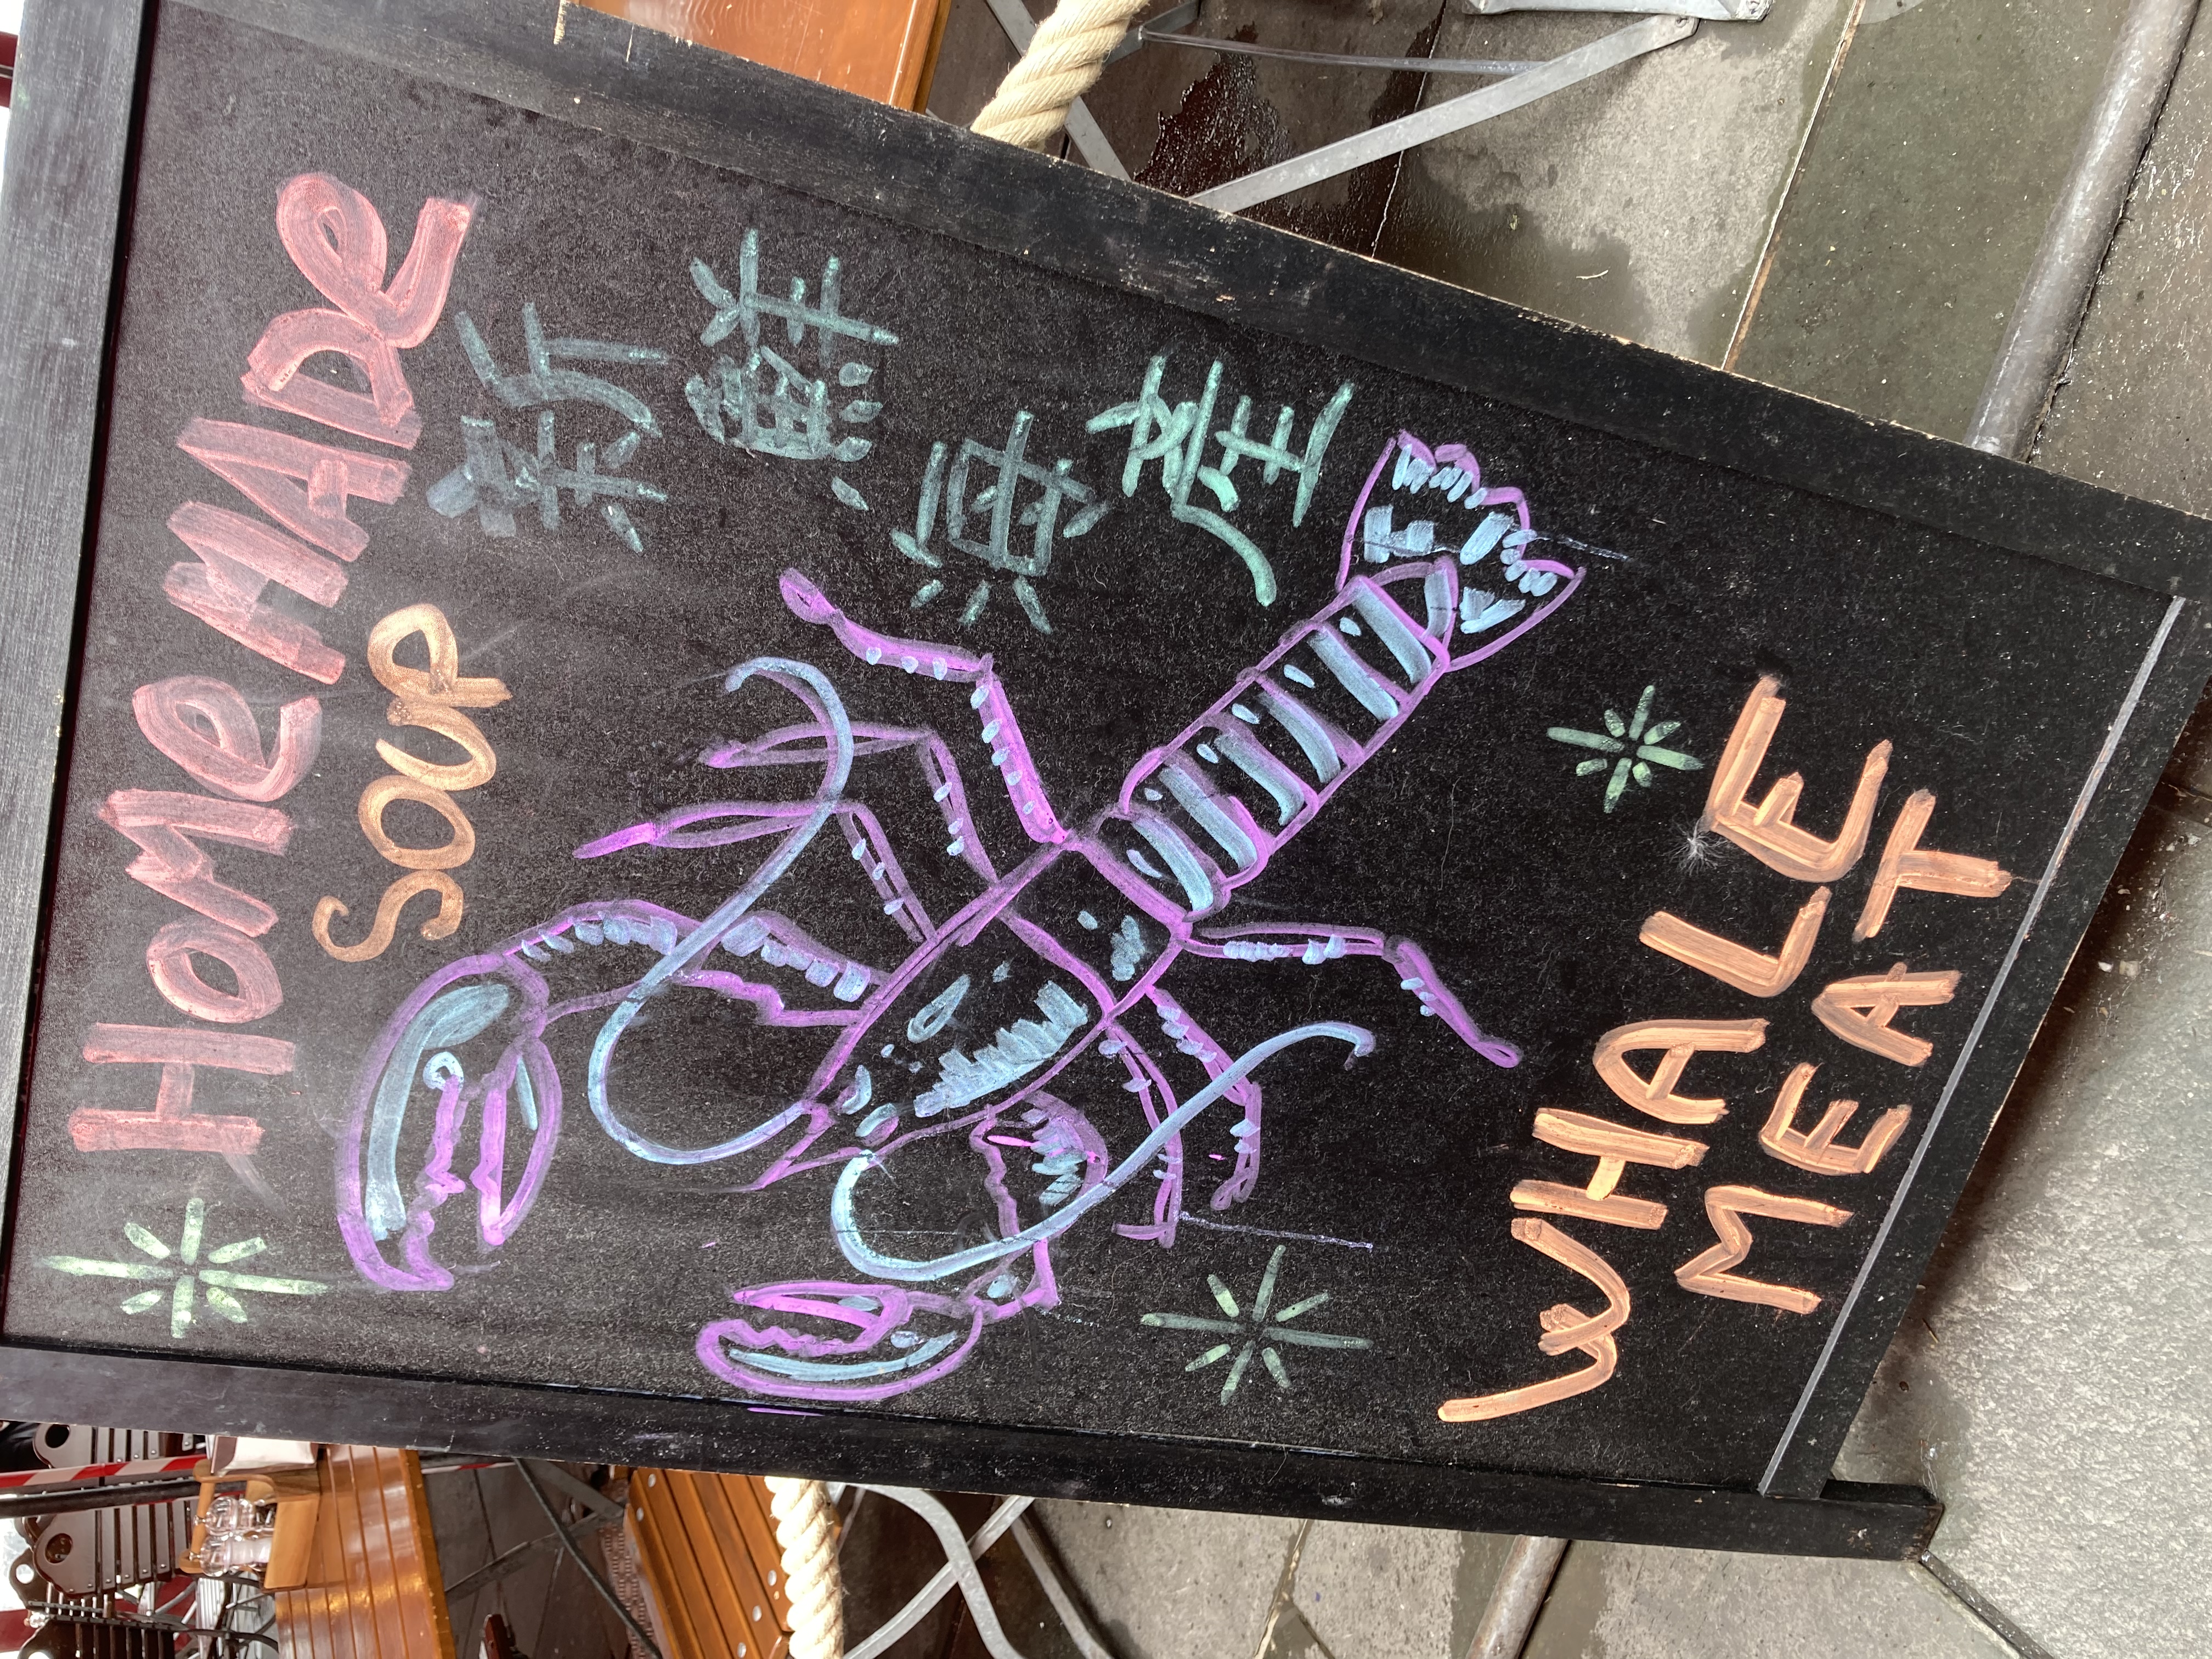 HOMEMADE
SOUP
新鮮海產
WHALE
MEAT